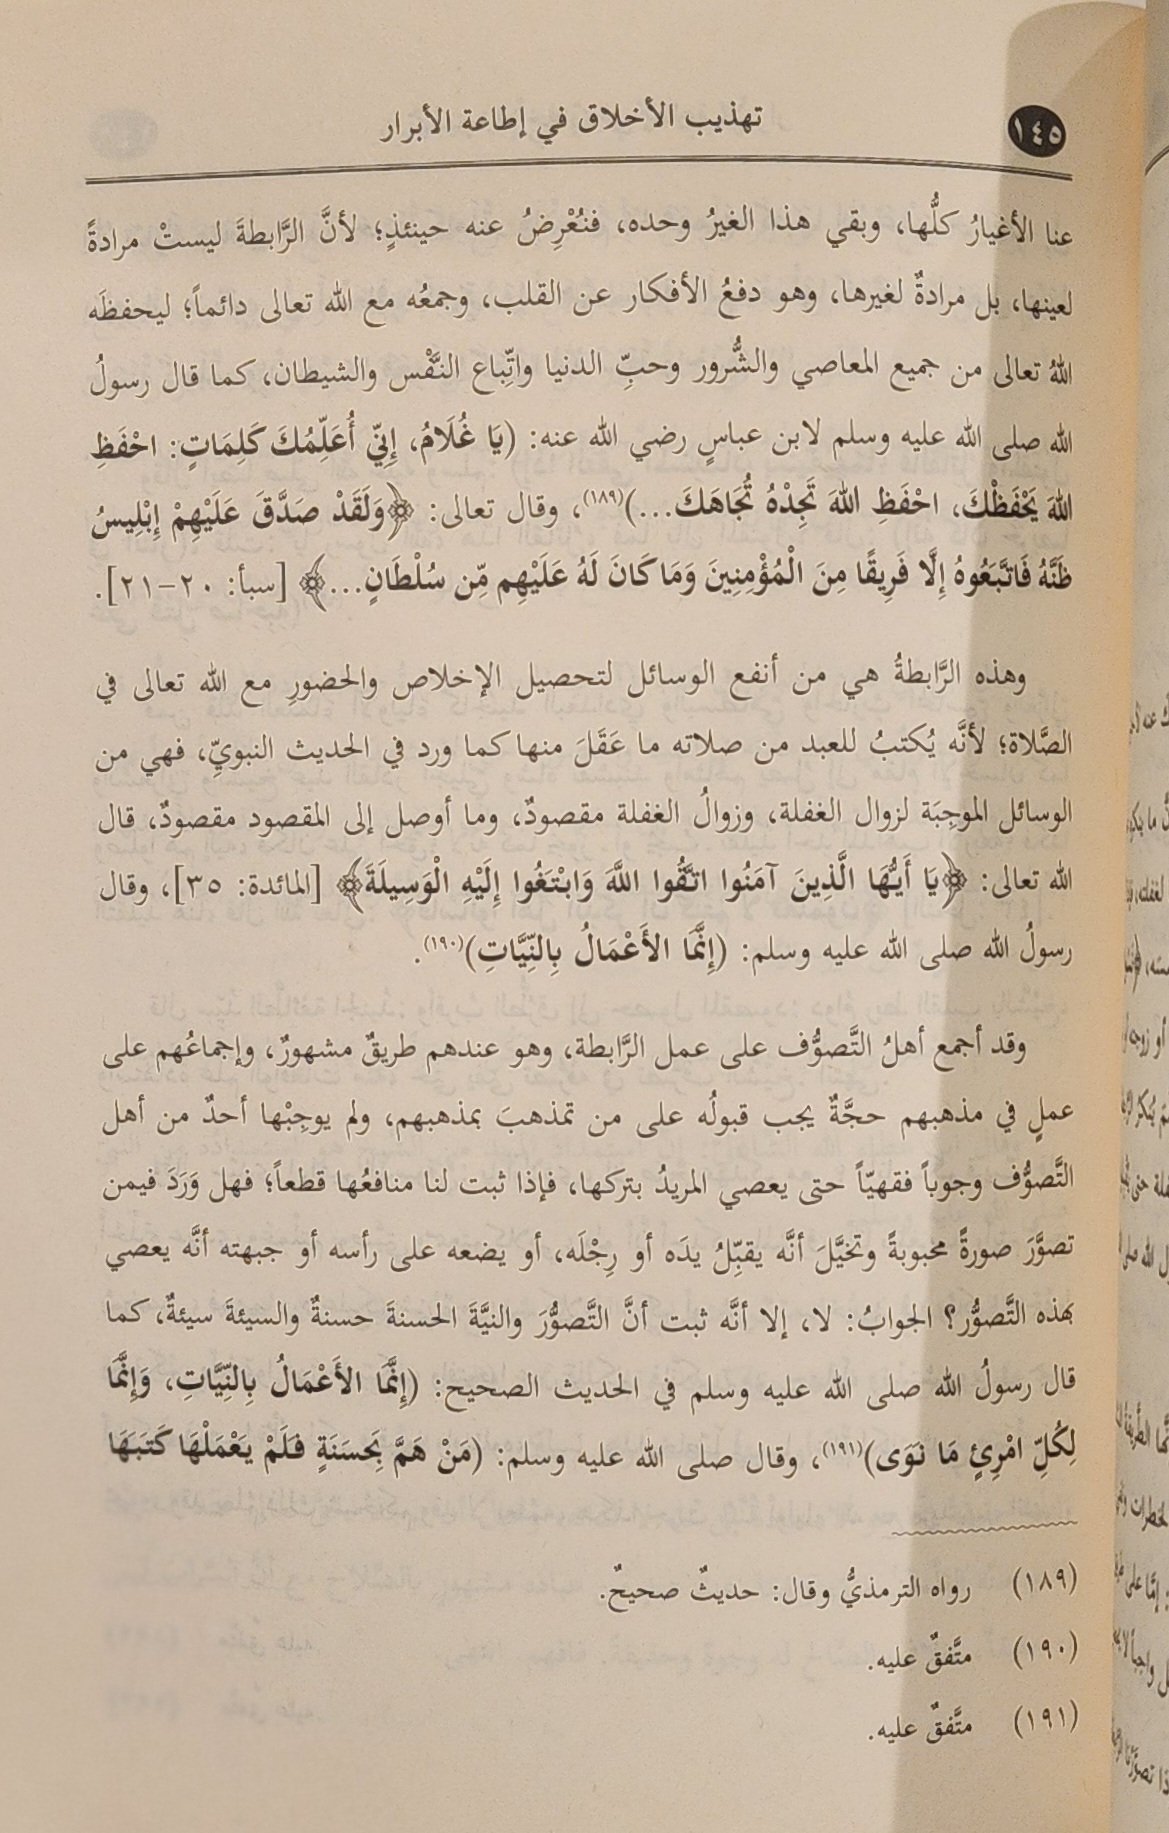 ١٤٥
تهذيب الأخلاق في إطاعة الأبرار
عنا الأغيارُ كلُّها، وبقي هذا الغيرُ وحده، فنُعْرِضُ عنه حينئذٍ؛ لأنَّ الرَّابطةَ ليستْ مرادةً
لعينها، بل مرادةٌ لغيرها، وهو دفعُ الأفكار عن القلب، وجمعُه مع الله تعالى دائماً؛ ليحفظَه
اللهُ تعالى من جميع المعاصي والشُّرور وحبِّ الدنيا واتِّباع النَّفْس والشيطان، كما قال رسولُ
الله صلى الله عليه وسلم لابن عباسٍ رضي الله عنه: (يَا غُلَامُ، إِنِّي أُعَلِّمُكَ كَلِمَاتٍ: احْفَظِ
اللهَ يَحْفَظْكَ، احْفَظِ اللهَ تَجِدْهُ تُجَاهَكَ...)(١٨٩)، وقال تعالى: ﴿وَلَقَدْ صَدَّقَ عَلَيْهِمْ إِبْلِيسُ
ظَنَّهُ فَاتَّبَعُوهُ إِلَّا فَرِيقًا مِنَ الْمُؤْمِنِينَ وَمَا كَانَ لَهُ عَلَيْهِم مِّن سُلْطَانٍ...﴾ [سبأ: ٢٠-٢١].
وهذه الرَّابطةُ هي من أنفع الوسائل لتحصيل الإخلاص والحضورِ مع الله تعالى في
الصَّلاة؛ لأنَّه يُكتبُ للعبد من صلاته ما عَقَلَ منها كما ورد في الحديث النبويِّ، فهي من
الوسائل الموجِبَة لزوال الغفلة، وزوالُ الغفلة مقصودٌ، وما أوصل إلى المقصود مقصودٌ، قال
الله تعالى: ﴿يَا أَيُّهَا الَّذِينَ آمَنُوا اتَّقُوا اللَّهَ وَابْتَغُوا إِلَيْهِ الْوَسِيلَةَ﴾ [المائدة: ٣٥]، وقال
رسولُ الله صلى الله عليه وسلم: (إِنَّمَا الأَعْمَالُ بِالنِّيَّاتِ)(١٩٠).
وقد أجمع أهلُ التَّصوُّف على عمل الرَّابطة، وهو عندهم طريقٌ مشهورٌ، وإجماعُهم على
عملٍ في مذهبهم حجَّةٌ يجب قبولُه على من تمذهبَ بمذهبهم، ولم يوجِبْها أحدٌ من أهل
التَّصوُّف وجوباً فقهيّاً حتى يعصي المريدُ بتركها، فإذا ثبت لنا منافعُها قطعاً؛ فهل وَرَدَ فيمن
تصوَّرَ صورةً محبوبةً وتخيَّلَ أنَّه يقبِّلُ يدَه أو رِجْلَه، أو يضعه على رأسه أو جبهته أنَّه يعصي
بهذه التَّصوُّر؟ الجوابُ: لا، إلا أنَّه ثبت أنَّ التَّصوُّرَ والنيَّةَ الحسنةَ حسنةٌ والسيئةَ سيئةٌ، كما
قال رسولُ الله صلى الله عليه وسلم في الحديث الصحيح: (إِنَّمَا الأَعْمَالُ بِالنِّيَّاتِ، وَإِنَّمَا
لِكُلِّ امْرِئٍ مَا نَوَى)(١٩١)، وقال صلى الله عليه وسلم: (مَنْ هَمَّ بِحَسَنَةٍ فَلَمْ يَعْمَلْهَا كَتَبَهَا
(١٨٩) رواه الترمذيُّ وقال: حديثٌ صحيحٌ.
(١٩٠) متَّفقٌ عليه.
(١٩١) متَّفقٌ عليه.